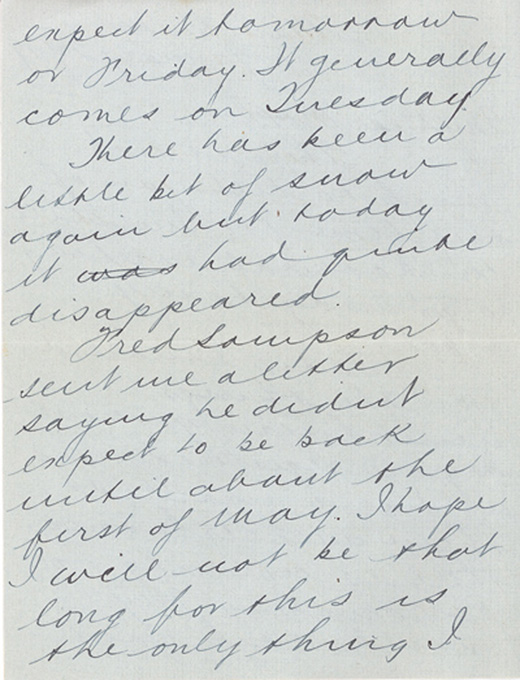 expect it tomorrow
or Friday. It generally
comes on Tuesday.
There has been a
little bit of snow
again but today
it was had quite
disappeared.
Fred Sampson
sent me a letter
saying he didnt
expect to be back
until about the
first of May. I hope
I will not be that
long for this is
the only thing I